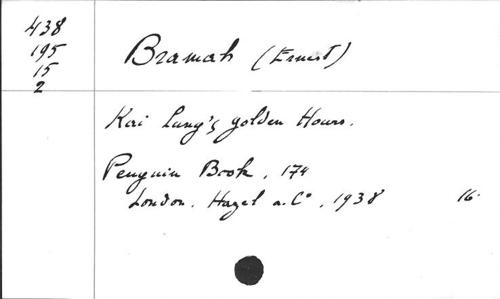 438
195
15
2
Bramah (Ernest)
Kai Lung's golden Hours.
Penguin Book, 174
London. Hazel a. C°, 1938 16.